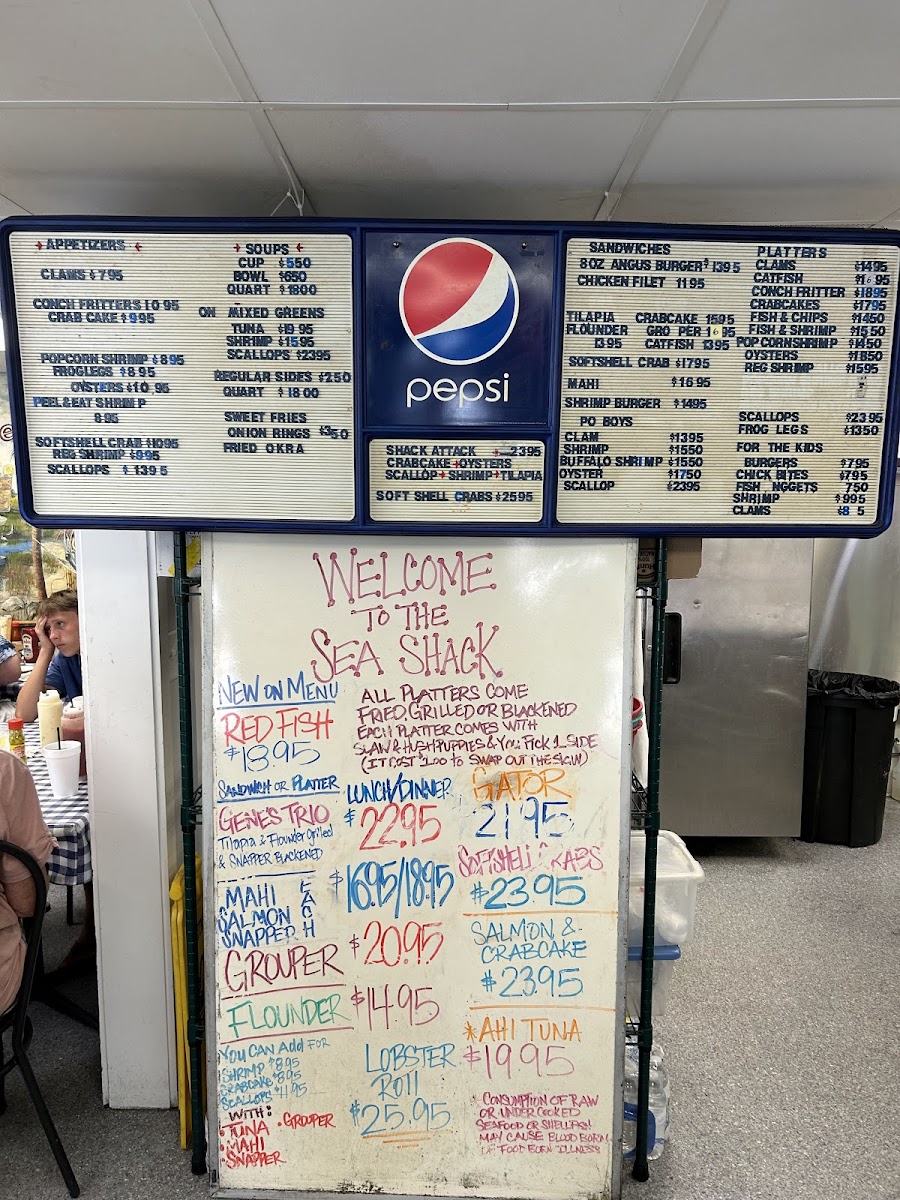 APPETIZERS
CLAMS $ 795
CONCH FRITTERS 10 95
CRAB CAKE $ 995
POPCORN SHRIMP $ 895
FROGLEGS $ 895
OYSTERS $10 .95
PEEL&EAT SHRIM P
8 95
SOFTSHELL CRAB $1095
REG SHRIMP $995
SCALLOPS $ 1395
SOUPS
CUP $550
BOWL $650
QUART $1800
ON MIXED GREENS
TUNA $19 95
SHRIMP $1595
SCALLOPS $2395
REGULAR SIDES $250
QUART $ 18 00
SWEET FRIES
ONION RINGS $350
FRIED OKRA
pepsi
SHACK ATTACK 2395
CRABCAKE+OYSTERS
SCALLOP+SHRIMP+TILAPIA
SOFT SHELL CRABS $2595
SANDWICHES
8OZ ANGUS BURGER $1395
CHICKEN FILET 1195
TILAPIA CRABCAKE 1595
FLOUNDER GRO PER 16 95
1395 CATFISH 1395
SOFTSHELL CRAB $1795
MAHI $1695
SHRIMP BURGER $1495
PO BOYS
CLAM $1395
SHRIMP $1550
BUFFALO SHRIMP $1550
OYSTER $1750
SCALLOP $2395
PLATTERS
CLAMS $1495
CATFISH $16 95
CONCH FRITTER $1895
CRABCAKES $1795
FISH & CHIPS $1450
FISH & SHRIMP $1550
POPCORNSHRIMP $1450
OYSTERS $1850
REG SHRIMP $1595
SCALLOPS $2395
FROG LEGS $1350
FOR THE KIDS
BURGERS $795
CHICK BITES $795
FISH NGGETS 750
SHRIMP $995
CLAMS $8 5
WELCOME
TO THE
SEA SHACK
NEW ON MENU
RED FISH
$18.95
SANDWICH OR PLATTER
ALL PLATTERS COME
FRIED, GRILLED OR BLACKENED
EACH PLATTER COMES WITH
SLAW & HUSHPUPPIES & YOU PICK 1 SIDE
(IT COST $1.00 TO SWAP OUT THE SLAW)
GENE'S TRIO
Tilapia & Flounder Grilled
& SNAPPER BLACKENED
LUNCH/DINNER
$22.95
MAHI
SALMON
SNAPPER
EACH
$16.95/18.95
GROUPER $20.95
FLOUNDER $14.95
YOU CAN ADD FOR
SHRIMP $8.95
CRABCAKE $8.95
SCALLOPS $11.95
WITH:
TUNA
• GROUPER
• MAHI
• SNAPPER
LOBSTER
ROLL
$25.95
GATOR
21.95
SOFTSHELL CRABS
$23.95
SALMON &
CRABCAKE
$23.95
*AHI TUNA
$19.95
* CONSUMPTION OF RAW
OR UNDERCOOKED
SEAFOOD OR SHELLFISH
MAY CAUSE BLOOD BORN
OF FOOD BORN ILLNESS